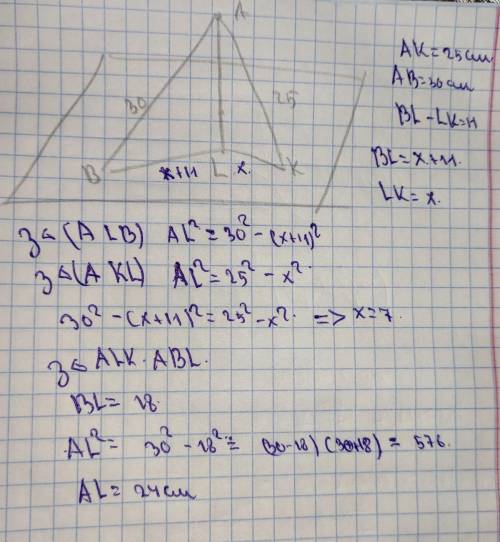 A
30
25
B
x+11
L
x.
K
AK=25см
AB=30см
BL-LK=11
BL=x+11.
LK=x.
З △ (A LB) AL²=30²-(x+11)²
З △ (A KL) AL²=25²-x².
30²-(x+11)²=25²-x². => x=7.
З △ ALK. ABL.
BL= 18.
AL²= 30²-18²= (30-18)(30+18) = 576.
AL=24см